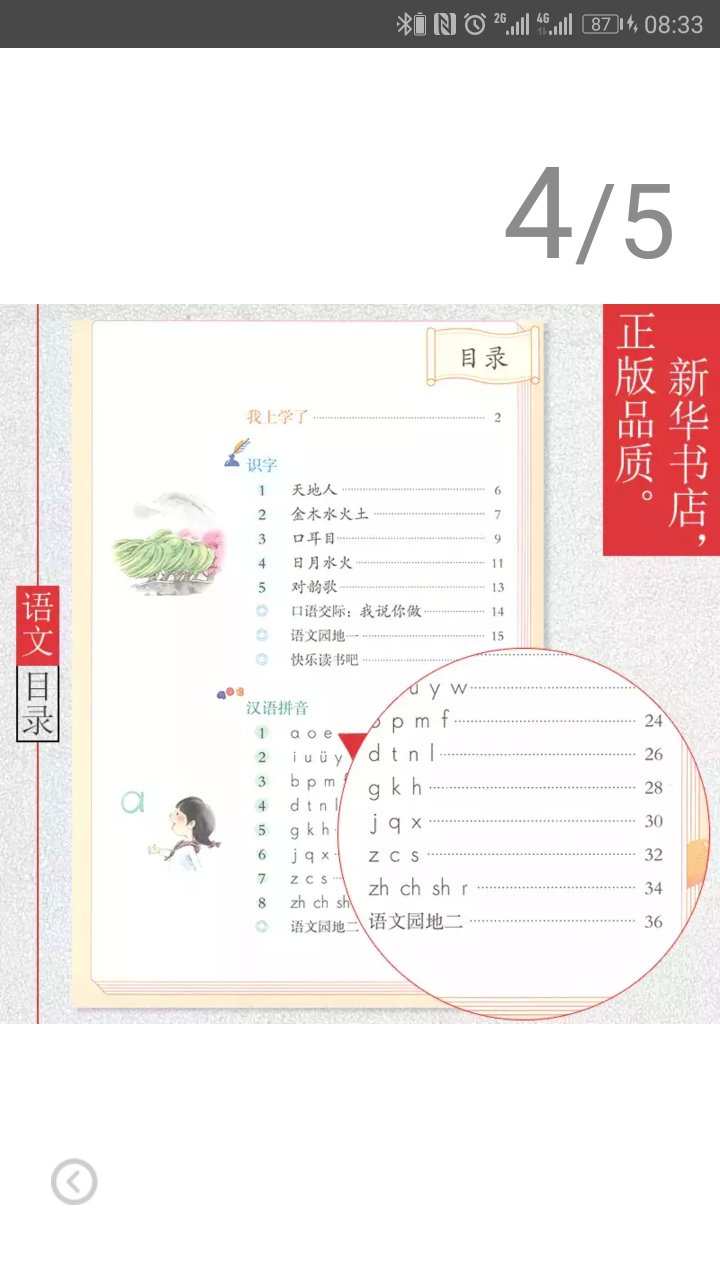 2G 4G 87 08:33
4/5
新华书店，
正版品质。
语文
目录
目录
我上学了 2
识字
1 天地人 6
2 金木水火土 7
3 口耳目 9
4 日月水火 11
5 对韵歌 13
口语交际：我说你做 14
语文园地一 15
快乐读书吧
汉语拼音
1 a o e
2 i u ü y
3 b p m f
4 d t n l
5 g k h
6 j q x
7 z c s
8 zh ch sh
语文园地二
a
u y w
b p m f 24
d t n l 26
g k h 28
j q x 30
z c s 32
zh ch sh r 34
语文园地二 36